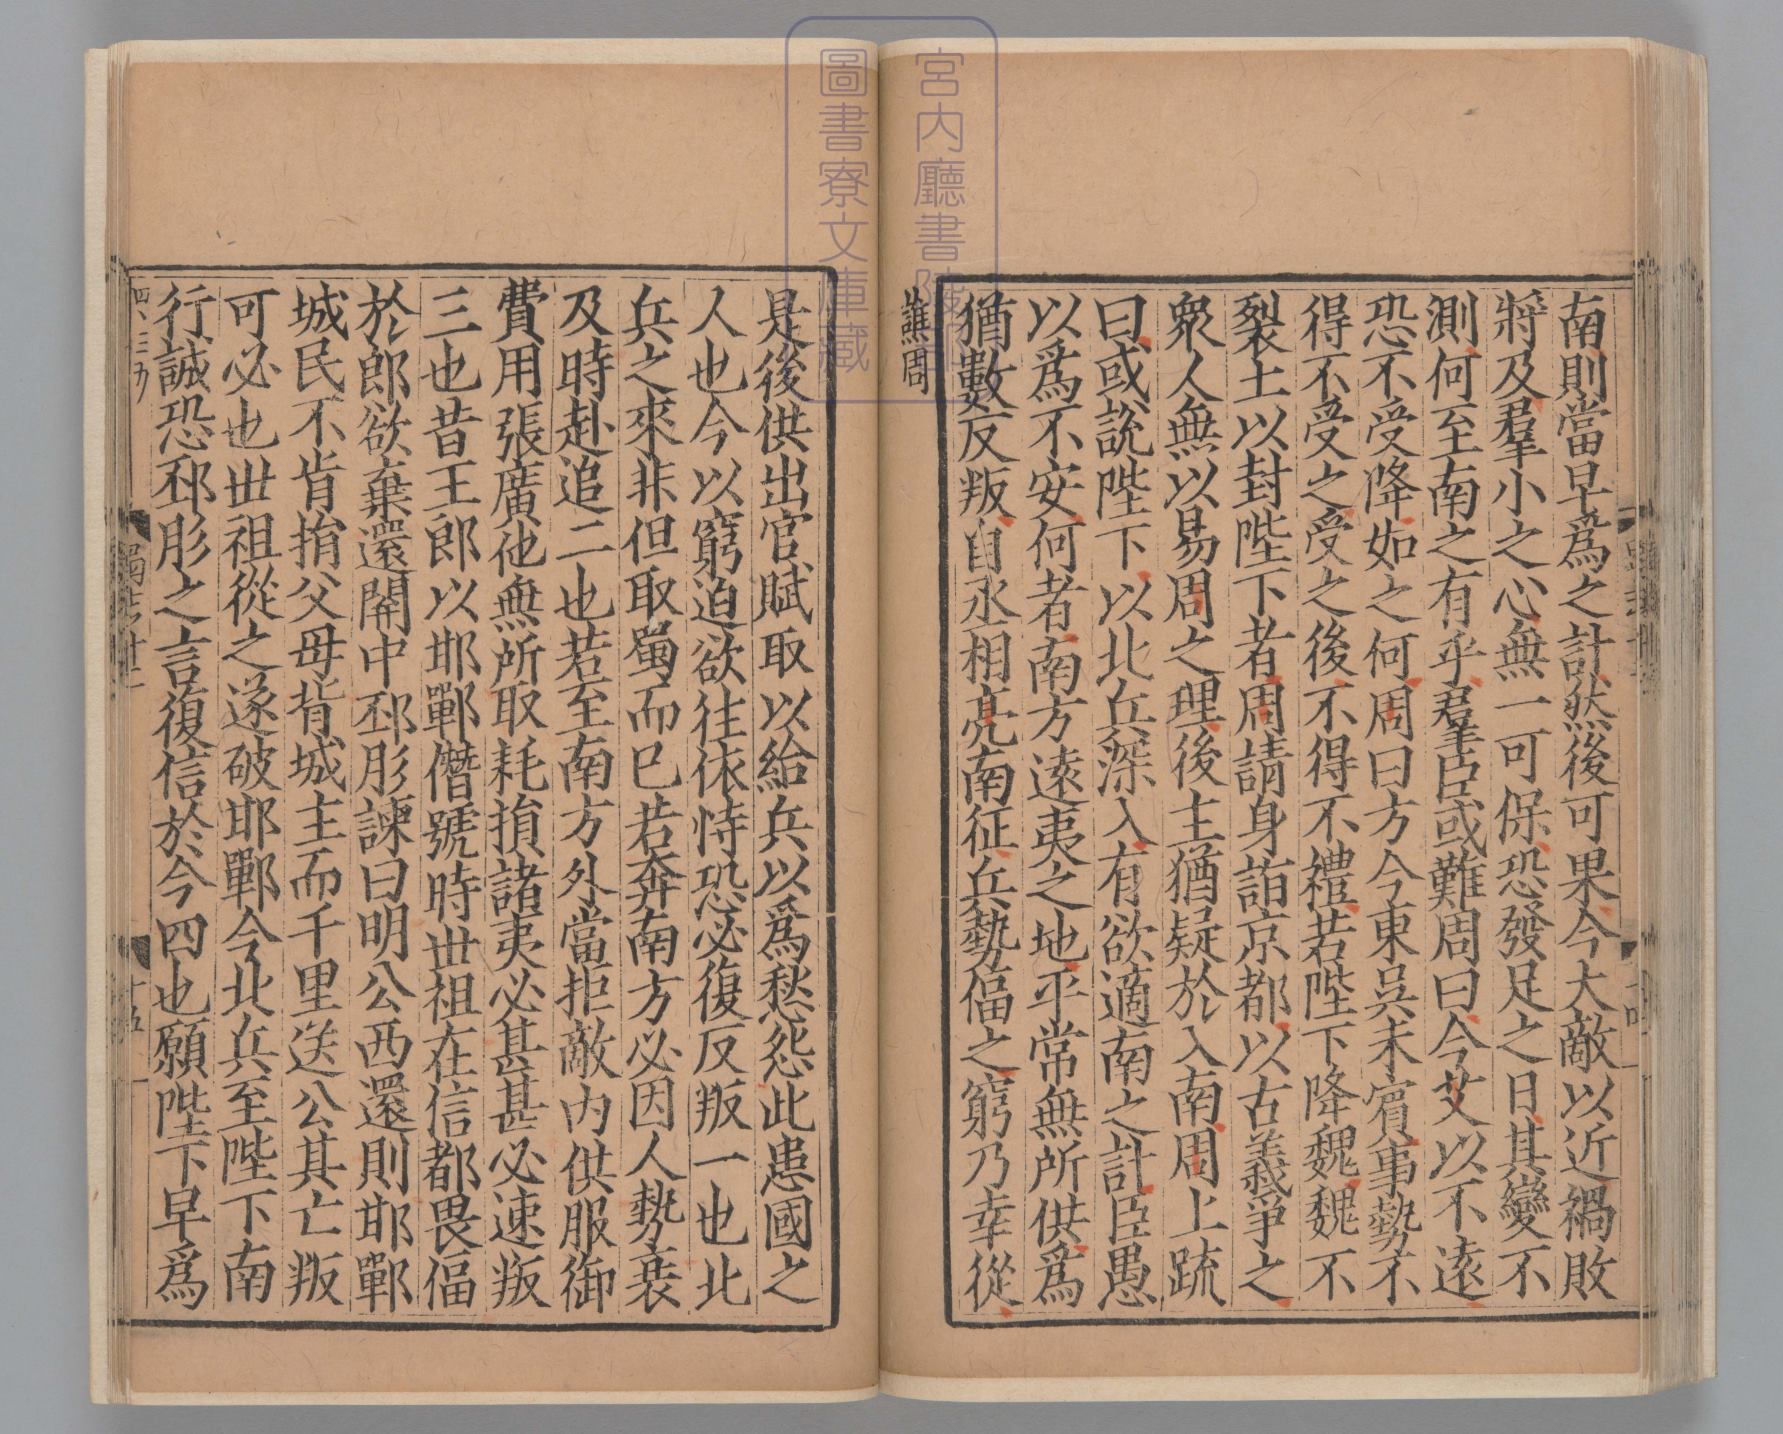 南則當早爲之計然後可果今大敵以近禍敗
將及羣小之心無一可保恐發足之日其變不
測何至南之有乎羣臣或難周曰今艾以不遠
恐不受降如之何周曰方今東吳未賔事勢不
得不受之受之後不得不禮若陛下降魏魏不
裂土以封陛下者周請身詣京都以古義爭之
衆人無以易周之理後主猶疑於入南周上疏
曰或說陛下以北兵深入有欲適南之計臣愚
以爲不安何者南方逺夷之地平常無所供爲
猶數反叛自丞相亮南征兵勢偪之窮乃幸從
譙周
是後供出官賦取以給兵以爲愁怨此患國之
人也今以窮迫欲往依恃恐必復反叛一也北
兵之來非但取蜀而已若奔南方必因人勢衰
及時赴追二也若至南方外當拒敵內供服御
費用張廣他無所取耗損諸夷必甚甚必速叛
三也昔王郎以邯鄲僭號時世祖在信都畏偪
於郎欲棄還關中邳肜諫曰明公西還則邯鄲
城民不肯捐父母背城主而千里送公其亡叛
可必也世祖從之遂破邯鄲今北兵至陛下南
行誠恐邳肜之言復信於今四也願陛下早爲
宮內廳書陵部
圖書寮文庫藏